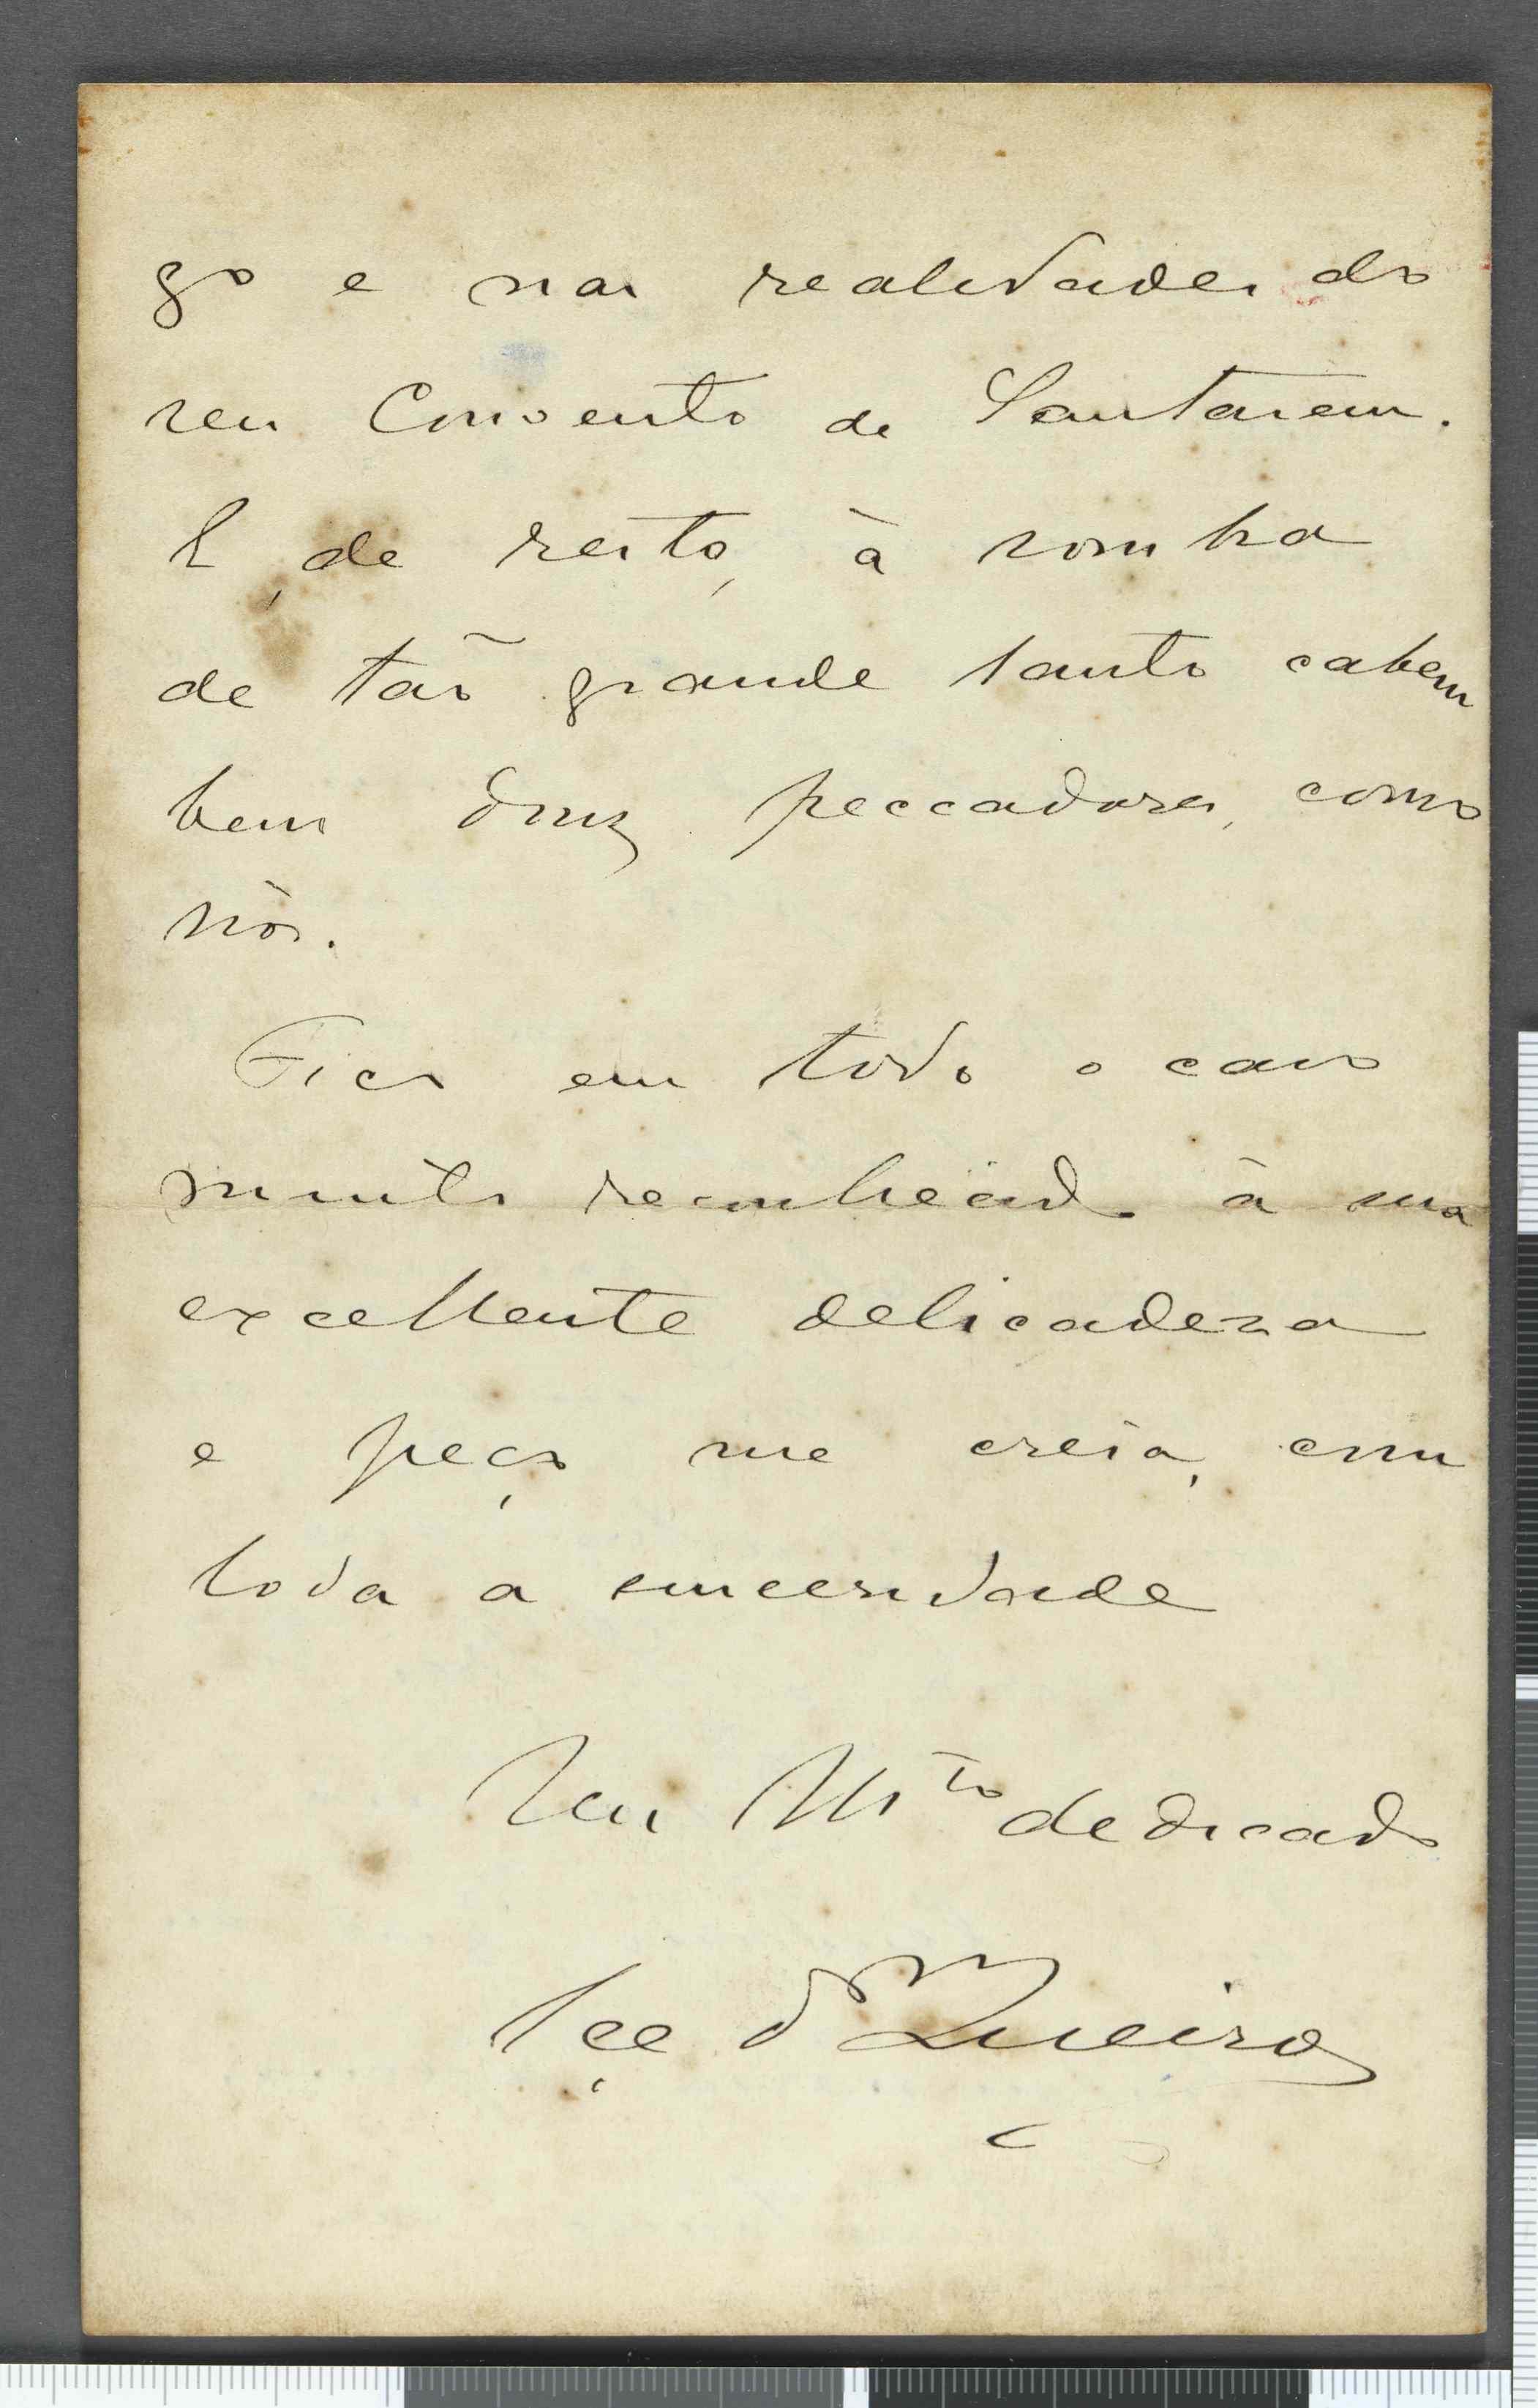 go e nas realidades do
seu Convento de Santarem.
E, de resto, à somba
de tão grande santo cabem
bem douz peccadores, como
nòs.
Fico em todo o caso
muito reconhecido à sua
excellente delicadeza
e peço me creia, com
toda a sinceridade
Seu Mto dedicado
Eça de Queiroz